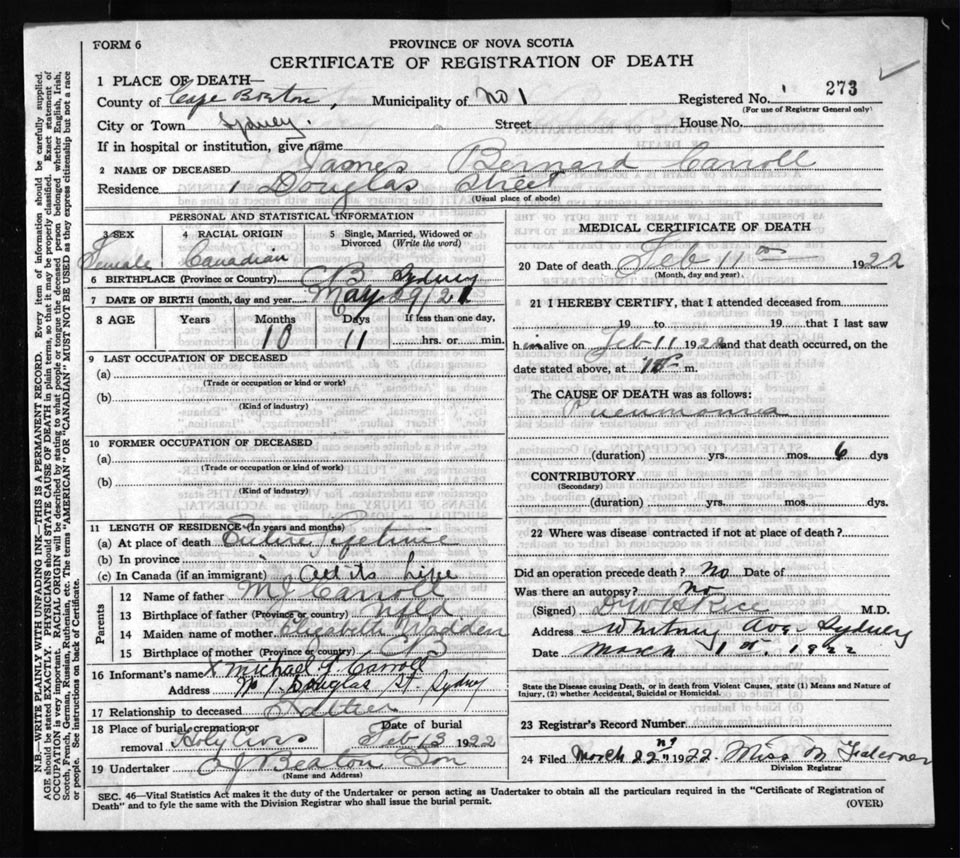 FORM 6
PROVINCE OF NOVA SCOTIA
CERTIFICATE OF REGISTRATION OF DEATH
1 PLACE OF DEATH—
County of Cape Breton, Municipality of No 1 Registered No. 273
(For use of Registrar General only)
City or Town Sydney. Street House No.
If in hospital or institution, give name
2 NAME OF DECEASED James Bernard Carroll
Residence 1 Douglas Street
(Usual place of abode)
PERSONAL AND STATISTICAL INFORMATION
3 SEX 4 RACIAL ORIGIN 5 Single, Married, Widowed or Divorced (Write the word)
Female Canadian
6 BIRTHPLACE (Province or Country) C B Sydney
7 DATE OF BIRTH (month, day and year) May 29/21
8 AGE Years Months Days If less than one day,
10 11 hrs. or min.
9 LAST OCCUPATION OF DECEASED
(a)
(Trade or occupation or kind or work)
(b)
(Kind of industry)
10 FORMER OCCUPATION OF DECEASED
(a)
(Trade or occupation or kind of work)
(b)
(Kind of industry)
11 LENGTH OF RESIDENCE (In years and months)
(a) At place of death Entire Lifetime
(b) In province
(c) In Canada (if an immigrant) All its Life
Parents
12 Name of father M J Carroll
13 Birthplace of father (Province or country) Nfld
14 Maiden name of mother Elizabeth Wadden
15 Birthplace of mother (Province or country)
16 Informant's name X Michael J. Carroll
Address No 1 Douglas St. Sydney
17 Relationship to deceased Father
18 Place of burial, cremation or removal Holy Cross Date of burial Feb 13 1922
19 Undertaker A J Beaton Son
(Name and Address)
MEDICAL CERTIFICATE OF DEATH
20 Date of death Feb 11 1922
(Month, day and year)
21 I HEREBY CERTIFY, that I attended deceased from
19 to 19 that I last saw
h im alive on Feb 11 1922 and that death occurred, on the
date stated above, at m.
The CAUSE OF DEATH was as follows:
Pneumonia
(duration) yrs. mos. 6 dys
CONTRIBUTORY
(Secondary)
(duration) yrs. mos. dys.
22 Where was disease contracted if not at place of death?
Did an operation precede death? No Date of
Was there an autopsy? No
(Signed) Dr W H Rice M.D.
Address Whitney Ave Sydney
Date March 1st. 1922
State the Disease causing Death, or in death from Violent Causes, state (1) Means and Nature of Injury, (2) whether Accidental, Suicidal or Homicidal.
23 Registrar's Record Number
24 Filed March 22nd 1922 Miss M Falconer
Division Registrar
SEC. 46—Vital Statistics Act makes it the duty of the Undertaker or person acting as Undertaker to obtain all the particulars required in the "Certificate of Registration of
Death" and to fyle the same with the Division Registrar who shall issue the burial permit. (OVER)
N.B.—WRITE PLAINLY WITH UNFADING INK—THIS IS A PERMANENT RECORD. Every item of information should be carefully supplied.
AGE should be stated EXACTLY. PHYSICIANS should STATE CAUSE OF DEATH in plain terms, so that it may be properly classified. Exact statement of
OCCUPATION is very important. RACIAL ORIGIN will be described by stating to what people or tongue the deceased person belonged, whether English, Irish,
Scotch, French, German, Russian, Ruthenian, etc. The terms "AMERICAN" OR "CANADIAN" MUST NOT BE USED as they express citizenship but not a race
or people. See instructions on back of Certificate.